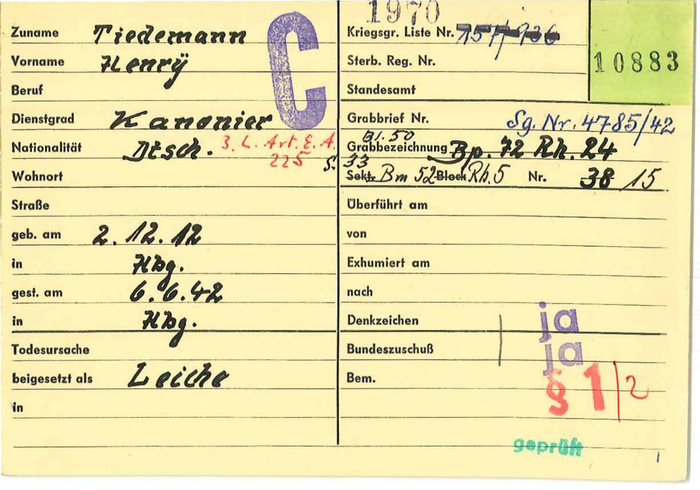 1970
Zuname Tiedemann
Vorname Henry
Beruf
C
Dienstgrad Kanonier
Nationalität Dtsch. 3. L. Art. E. A. 225
Wohnort
Straße
geb. am 2.12.12
in Hbg.
gest. am 6.6.42
in Hbg.
Todesursache
beigesetzt als Leiche
in
Kriegsgr. Liste Nr.
10883
Sterb. Reg. Nr.
Standesamt
Grabbrief Nr. Sg. Nr. 4785/42
Bl. 50
Grabbezeichnung Bp. 72 Rh. 24
S. 33
Sekt. Bm 52 Block Rh. 5 Nr. 38 / 15
Überführt am
von
Exhumiert am
nach
Denkzeichen ja
Bundeszuschuß ja
Bem. § 1/2
geprüft